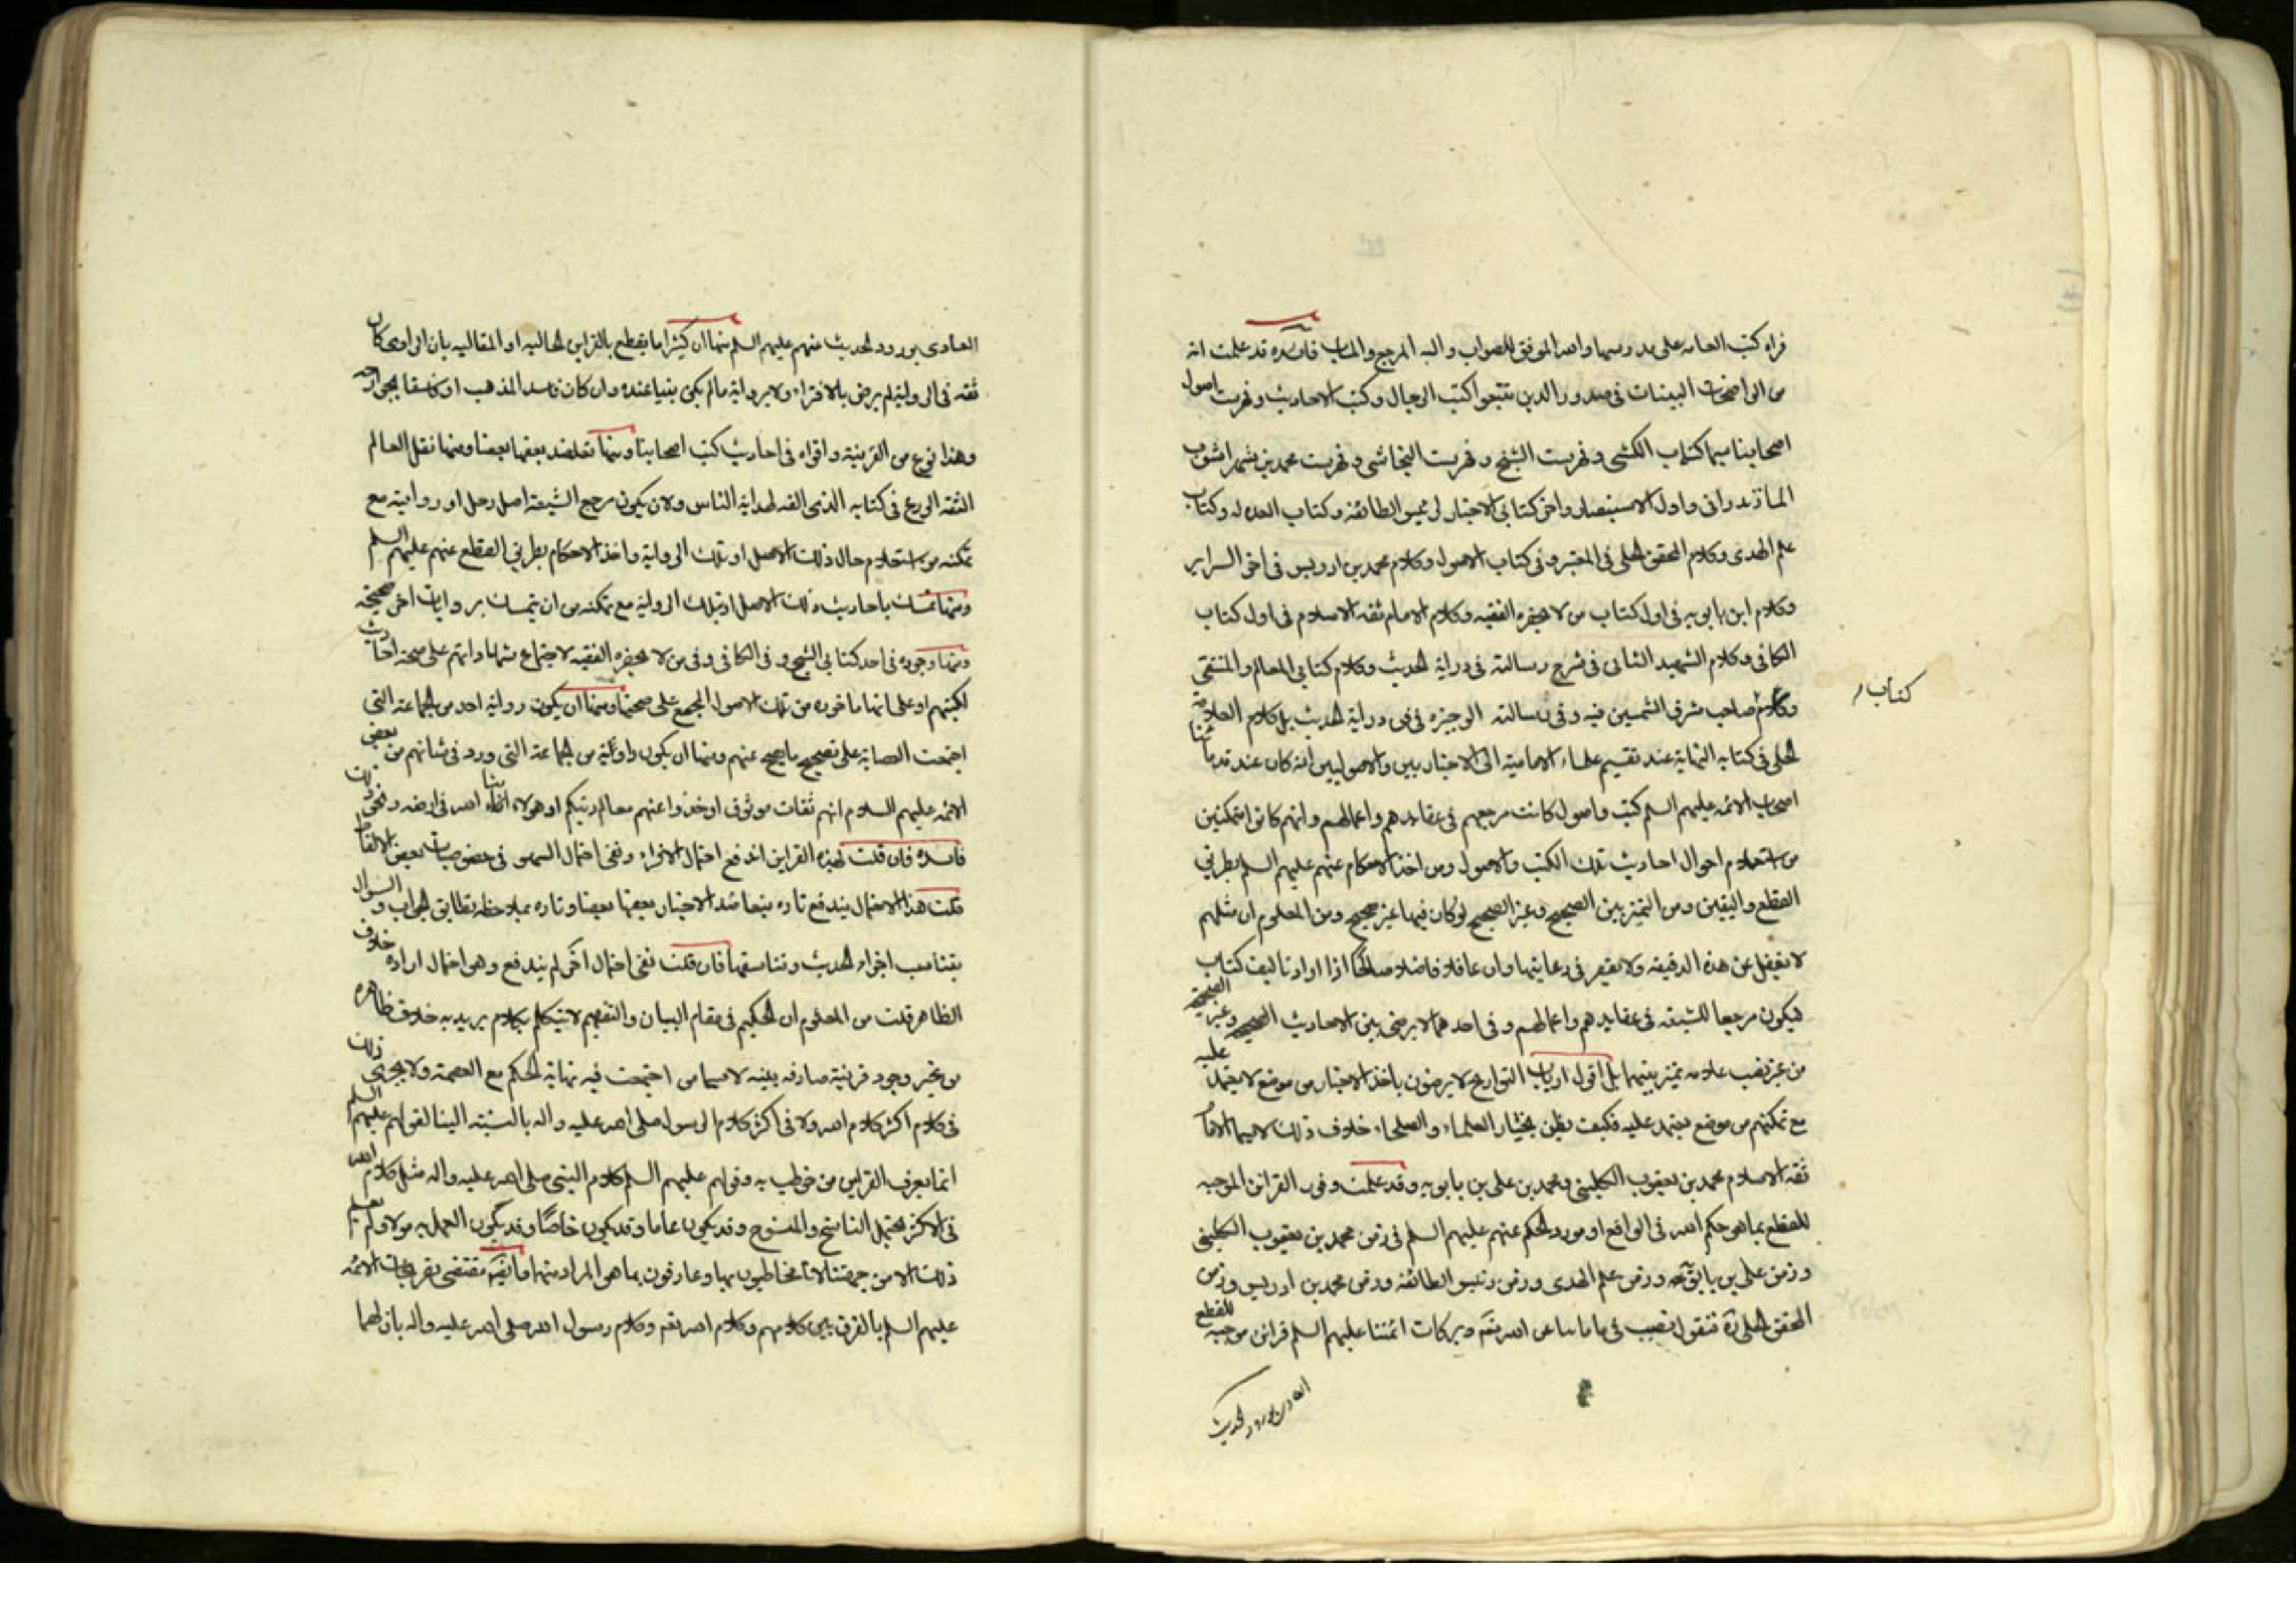 قراه كتب العامه على مدرسيها والله الموفق للصواب واليه المرجع والماب فائدة قد علمت انه
من الواضحات البينات في صدور الذين تتبعوا كتب الرجال وكتب الاحاديث وفهرست اصول
اصحابنا سيما كتاب الكشي وفهرست الشيخ وفهرست النجاشي وفهرست محمد بن شهراشوب
المازندراني واول الاستبصار واخر كتابي الاخبار لرئيس الطائفة وكتاب العدة له وكتاب
علم الهدى وكلام المحقق الحلي في المعتبر وفي كتاب الاصول وكلام محمد بن ادريس في اخر السراير
وكلام ابن بابويه في اول كتاب من لا يحضره الفقيه وكلام الامام ثقة الاسلام في اول كتاب
الكافي وكلام الشهيد الثاني في شرح رسالته في دراية الحديث وكلام كتابي المعالم والمنتقى
كتاب
وكلام صاحب مشرق الشمسين فيه وفي رسالته الوجيزه في فن دراية الحديث بل كلام العلامة
الحلي في كتابه النهاية عند تقسيم علماء الامامية الى الاخباريين والاصوليين انه كان عند قدمائنا
اصحاب الائمه عليهم السلم كتب واصول كانت مرجعهم في عقايدهم واعمالهم وانهم كانوا متمكنين
من استعلام احوال احاديث تلك الكتب والاصول ومن اخذ الاحكام عنهم عليهم السلم بطريق
القطع واليقين ومن التميز بين الصحيح وغير الصحيح لو كان فيها غير صحيح ومن المعلوم ان مثلهم
لا يغفل عن هذه الدقيقه ولا يقصر في رعايتها وان عاقلا فاضلا صالحا اذا اراد تاليف كتاب
فيكون مرجعا للشيعة في عقايدهم واعمالهم وفي احدهما لا يرضى بين الاحاديث الصحيحة وغير الصحيحة
من غير نصب علامه تميز بينهما بل اقول ارباب التواريخ لا يرضون باخذ الاخبار من موضع لا يعتمد عليه
مع تمكنهم من موضع يعتمد عليه فكيف يظن بخيار العلماء والصلحاء خلاف ذلك لاسيما الامام
ثقة الاسلام محمد بن يعقوب الكليني ومحمد بن علي بن بابويه وقد علمت وفور القراين الموجبه
للقطع بما هو حكم الله في الواقع او مورد الحكم عنهم عليهم السلم في زمن محمد بن يعقوب الكليني
وزمن علي بن بابويه وزمن علم الهدى وزمن رئيس الطائفة وزمن محمد بن ادريس وزمن
المحقق الحلي ره فنقول نصيب في ماماننا من الله تع وبركات ائمتنا عليهم السلم قراين موجبة للقطع
العادي بورود الحديث
العادي بورود الحديث عنهم عليهم السلم منها ان كثيرا ما يقطع بالقراين الحاليه او المقاليه بان الراوي كان
ثقه في الرواية لم يرض بالافتراء ولا برواية ما لم يكن بينا عنده وان كان فاسد المذهب او فاسقا بجوارحه
وهذا نوع من القرينة وافراه في احاديث كتب اصحابنا ومنها تعاضد بعضها بعضا ومنها نقل العالم
الثقه الورع في كتابه الذي الفه لهداية الناس ولان يكون مرجع الشيعة اصل رجل او روايته مع
تمكنه من استعلام حال ذلك الاصل او تلك الرواية واخذ الاحكام بطريق القطع عنهم عليهم السلم
ومنها تمسك باحاديث ذلك الاصل او تلك الرواية مع تمكنه من ان يتمسك بروايات اخر صحيحة
ومنها وجوده في احد كتابي الشيخ وفي الكافي وفي من لا يحضره الفقيه لاجتماع شهاداتهم على صحة احاديث
كتبهم او على انها ماخوذه من تلك الاصول المجمع على صحتها ومنها ان يكون رواية احد من الجماعة التي
اجتمعت العصابة على تصحيح ما يصح عنهم ومنها ان يكون راويه من الجماعة التي ورد في شانهم من بعض
الائمه عليهم السلام انهم ثقات موثوق او خذوا عنهم معالم دينكم او هولاء امناء الله في ارضه ونحو ذلك
فائده فان قلت لهذه القراين اندفع احتمال الافتراء وبقى احتمال السهو في خصوصيات بعض الالفاظ
قلت هذا الاحتمال يندفع تاره بتعاضد الاخبار بعضها بعضا وتاره بملاحظه تطابق الجواب والسوال
بتناسب اجزاء الحديث وتناسقها فان قلت بقى احتمال اخر لم يندفع وهو احتمال اراده خلاف
الظاهر قلت من المعلوم ان الحكيم في مقام البيان والتفهيم لا يتكلم بكلام يريد به خلاف ظاهره
من غير وجود قرينة صارفه بينه لاسيما من اجتمعت فيه نهاية الحكم مع العصمة ولا يجرى ذلك
في كلام اكثر كلام الله ولا في اكثر كلام الرسول صلى الله عليه واله بالنسبة الينا لقولهم عليهم السلم
انما يعرف القراين من خوطب به وقولهم عليهم السلم كلام النبي صلى الله عليه واله مثل كلام الله
في الاكثر يحتمل الناسخ والمنسوخ وقد يكون عاما وقد يكون خاصا وقد يكون العمل به مولا ولم يعلم
ذلك الا من جهتنا لانا مخاطبون بها وعارفون بما هو المراد منها فائده مقتضى تصريحات الائمه
عليهم السلم بالفرق بين كلامهم وكلام الله تعم وكلام رسول الله صلى الله عليه واله بان لهما